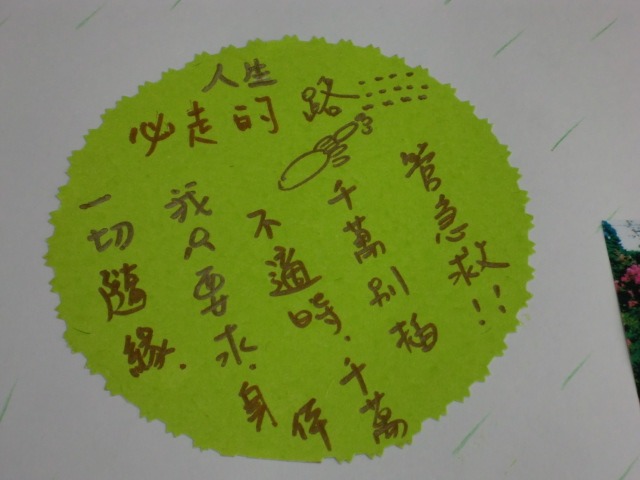 人生
必走的路……
一切隨緣.
我只要求.身体
不適時.千萬
千萬別插
管急救!!